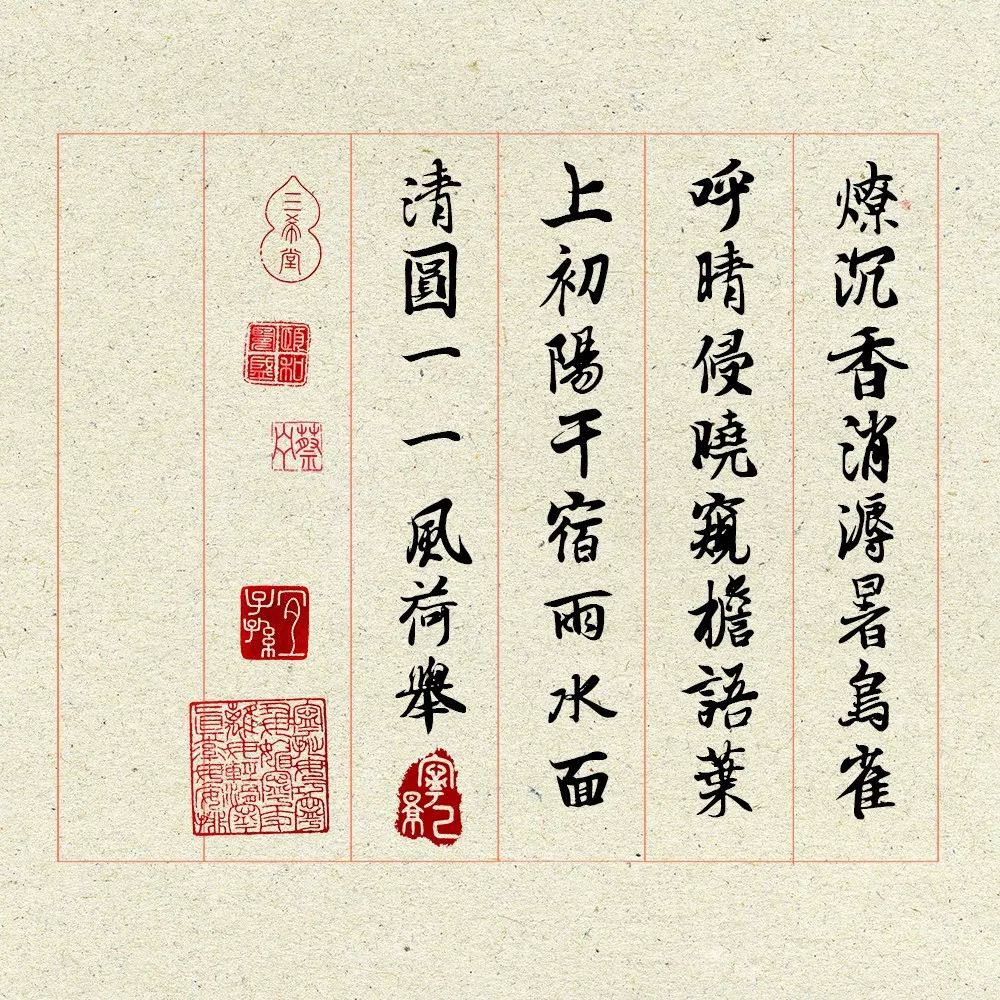 燎沉香消溽暑鳥雀
呼晴侵曉窺檐語葉
上初陽干宿雨水面
清圓一一風荷舉
三希堂
宜子孫